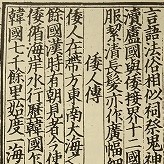 言語法俗相似祠祭
瀆盧國與倭接界十二國
服絜清長髮亦作廣幅
倭人傳
倭人在帶方東南大海
餘國漢時有朝見者今使
倭循海岸水行歷韓國
韓國七千餘里始度一海